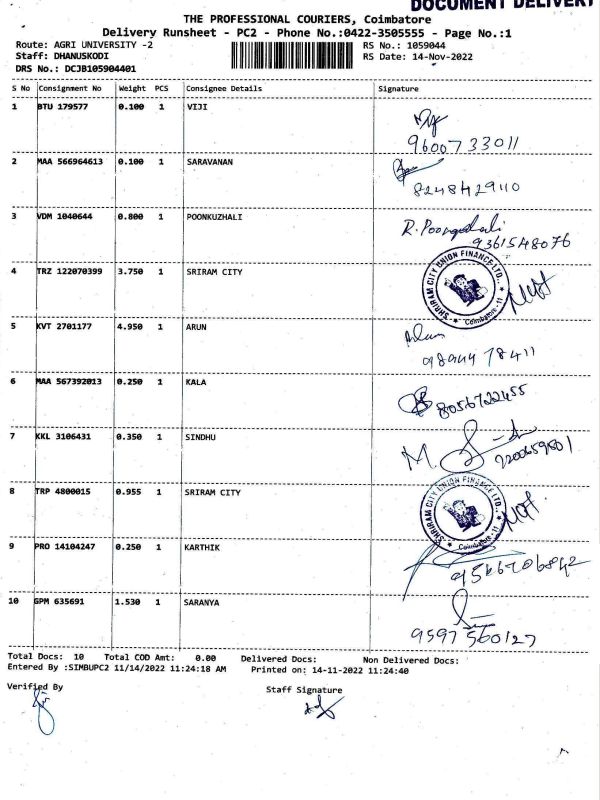 DOCUMENT DELIVERY
THE PROFESSIONAL COURIERS, Coimbatore
Delivery Runsheet - PC2 - Phone No.:0422-3505555 - Page No.:1
Route: AGRI UNIVERSITY -2 RS No.: 1059044
Staff: DHANUSKODI RS Date: 14-Nov-2022
DRS No.: DCJB105904401
S No Consignment No Weight PCS Consignee Details Signature
1 BTU 179577 0.100 1 VIJI
9600733011
2 MAA 566964613 0.100 1 SARAVANAN
8248429110
3 VDM 1040644 0.800 1 POONKUZHALI
9361548076
4 TRZ 122070399 3.750 1 SRIRAM CITY
SHRIRAM CITY UNION FINANCE LTD., Coimbatore - 11
5 KVT 2701177 4.950 1 ARUN
6 MAA 567392013 0.250 1 KALA
8056722455
7 KKL 3106431 0.350 1 SINDHU
8 TRP 4800015 0.955 1 SRIRAM CITY
SHRIRAM CITY UNION FINANCE LTD., Coimbatore - 11
9 PRO 14104247 0.250 1 KARTHIK
10 GPM 635691 1.530 1 SARANYA
9597560127
Total Docs: 10 Total COD Amt: 0.00 Delivered Docs: Non Delivered Docs:
Entered By :SIMBUPC2 11/14/2022 11:24:18 AM Printed on: 14-11-2022 11:24:40
Verified By Staff Signature